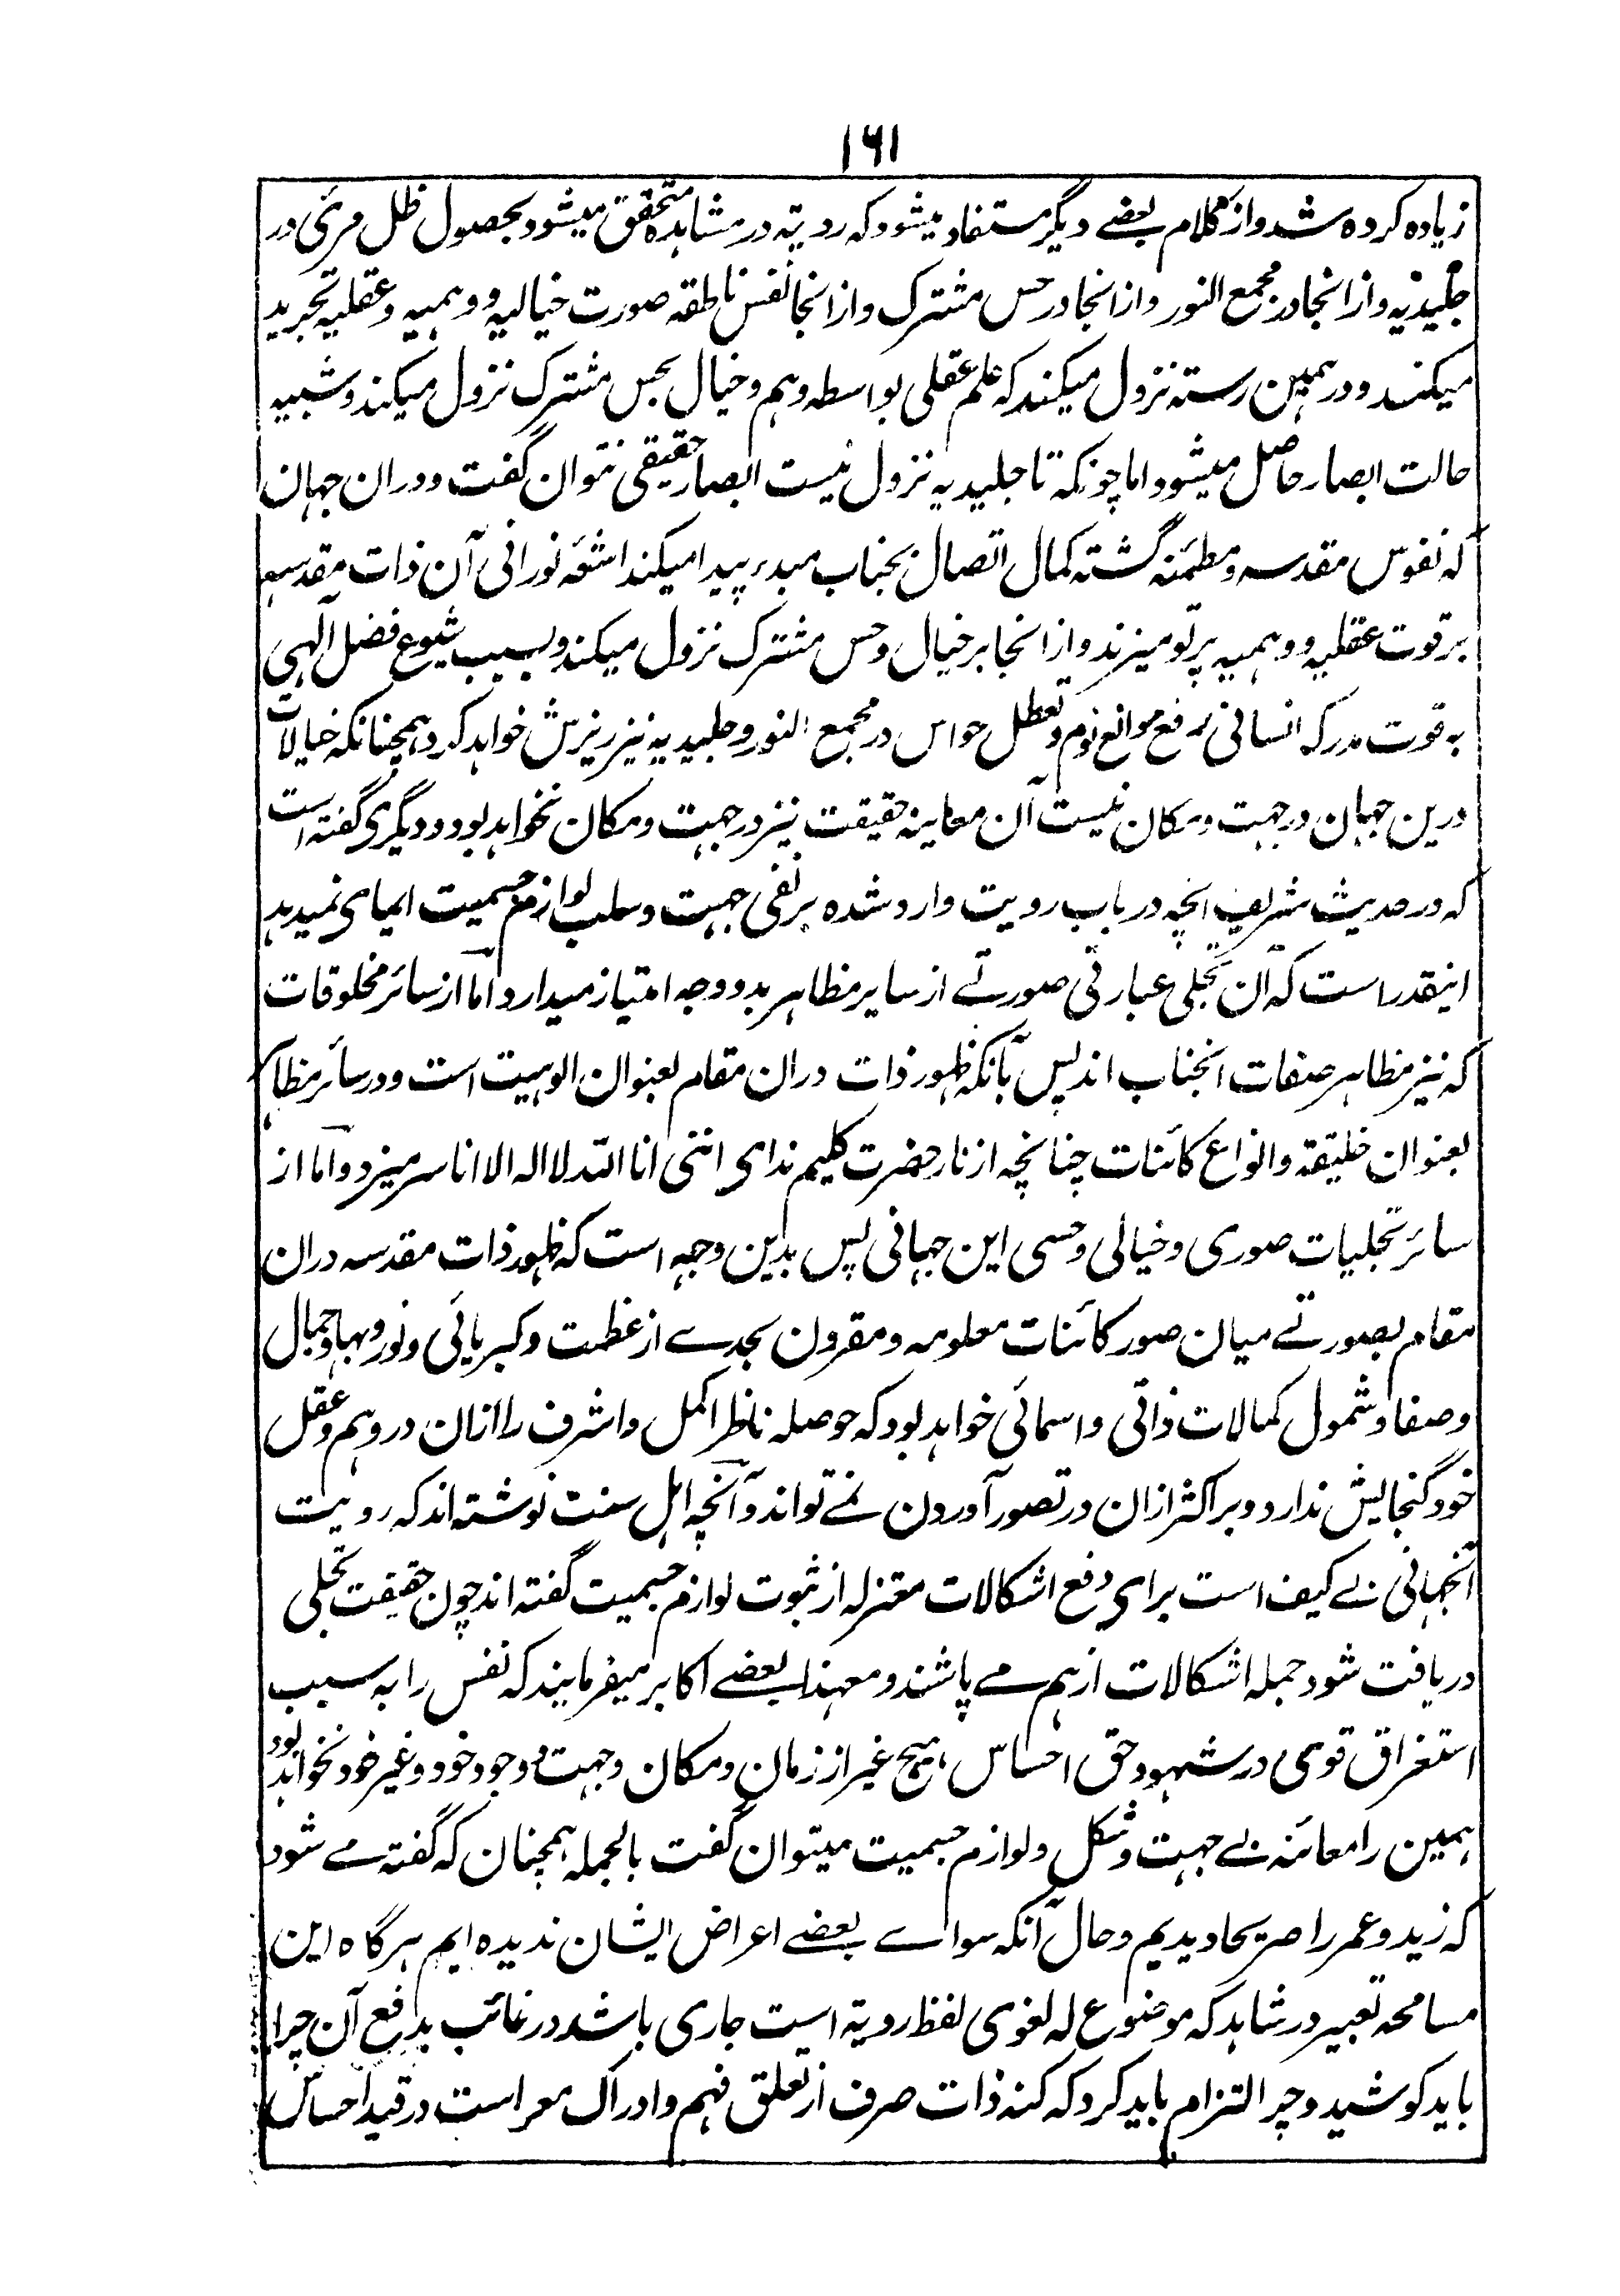 ۱۶۱
زیاده کرده شد و از کلام بعضے دیگر مستفاد میشود که رویة در مشاهده متحقق میشود بحصول ظل مرئی در
جلیدیه و از انجا در مجمع النور و از انجا در حس مشترک و از انجا نفس ناطقه صورت خیالیه و وهمیه و عقلیه تجرید
میکند و در همین رسته نزول میکند که علم عقلی بواسطه وهم و خیال بحس مشترک نزول میکند و شبیه
حالت ابصار حاصل میشود اما چونکه تا جلیدیه نزول نیست ابصار حقیقی نتوان گفت و دران جهان
که نفوس مقدسه و مطمئنه گشته کمال اتصال بجناب مبدء پیدا میکند اشعّه نورانی آن ذات مقدسه
بر قوت عقلیه و وهمیه پرتو میزند و از انجا بر خیال و حس مشترک نزول میکند و بسبب شیوع فضل الٰهی
به قوت مدرکه انسانی برفع موانع نوم و تعطل حواس در مجمع النور و جلیدیه نیز ریزش خواهد کرد همچنانکه خیالات
درین جهان در جهت و مکان نیست آن معاینه حقیقت نیز در جهت و مکان نخواهد بود و دیگری گفته است
که در حدیث شریف انچه در باب رویت وارد شده بر نفی جهت و سلب لوازم جسمیت ایمای نمیدهد
اینقدر است که آن تجلی عبارتی صورتے از سایر مظاهر بدو وجه امتیاز میدارد اما از سائر مخلوقات
که نیز مظاهر صفات انجناب اند پس بآنکه ظهور ذات دران مقام بعنوان الوهیت است و در سائر مظاهر
بعنوان خلیقة و انواع کائنات چنانچه از نار حضرت کلیم ندای اننی انا الله لا اله الا انا سر میزد و اما از
سائر تجلیات صوری و خیالی و حسی این جهانی پس بدین وجه است که ظهور ذات مقدسه دران
مقام بصورتے میان صور کائنات معلومه و مقرون بحدے از عظمت و کبریائی و نور و بها و جمال
و صفا و شمول کمالات ذاتی و اسمائی خواهد بود که حوصله ناظر اکمل و اشرف را ازان در وهم و عقل
خود گنجایش ندارد و بر اکثر ازان در تصور آوردن نمے تواند و آنچه اهل سنت نوشته اند که رویت
آنجهانی بے کیف است برای دفع اشکالات معتزله از ثبوت لوازم جسمیت گفته اند چون حقیقت تجلی
دریافت شود جمله اشکالات از هم مے پاشند و معهذا بعضے اکابر میفرمایند که نفس را به سبب
استغراق قوی در شهود حق احساس هیچ غیر از زمان و مکان و جهت و وجود خود و غیر خود نخواهد بود
همین را معائنه بے جهت و شکل و لوازم جسمیت میتوان گفت بالجمله همچنان که گفته مے شود
که زید و عمر را صریحا دیدیم و حال آنکه سوائے بعضے اعراض ایشان ندیده ایم هرگاه این
مسامحه تعبیر در شاهد که موضوع له لغوی لفظ رویة است جاری باشد در غائب بدفع آن چرا
باید کوشید و چرا التزام باید کرد که کنه ذات صرف از تعلق فهم و ادراک معراست در قید احساس